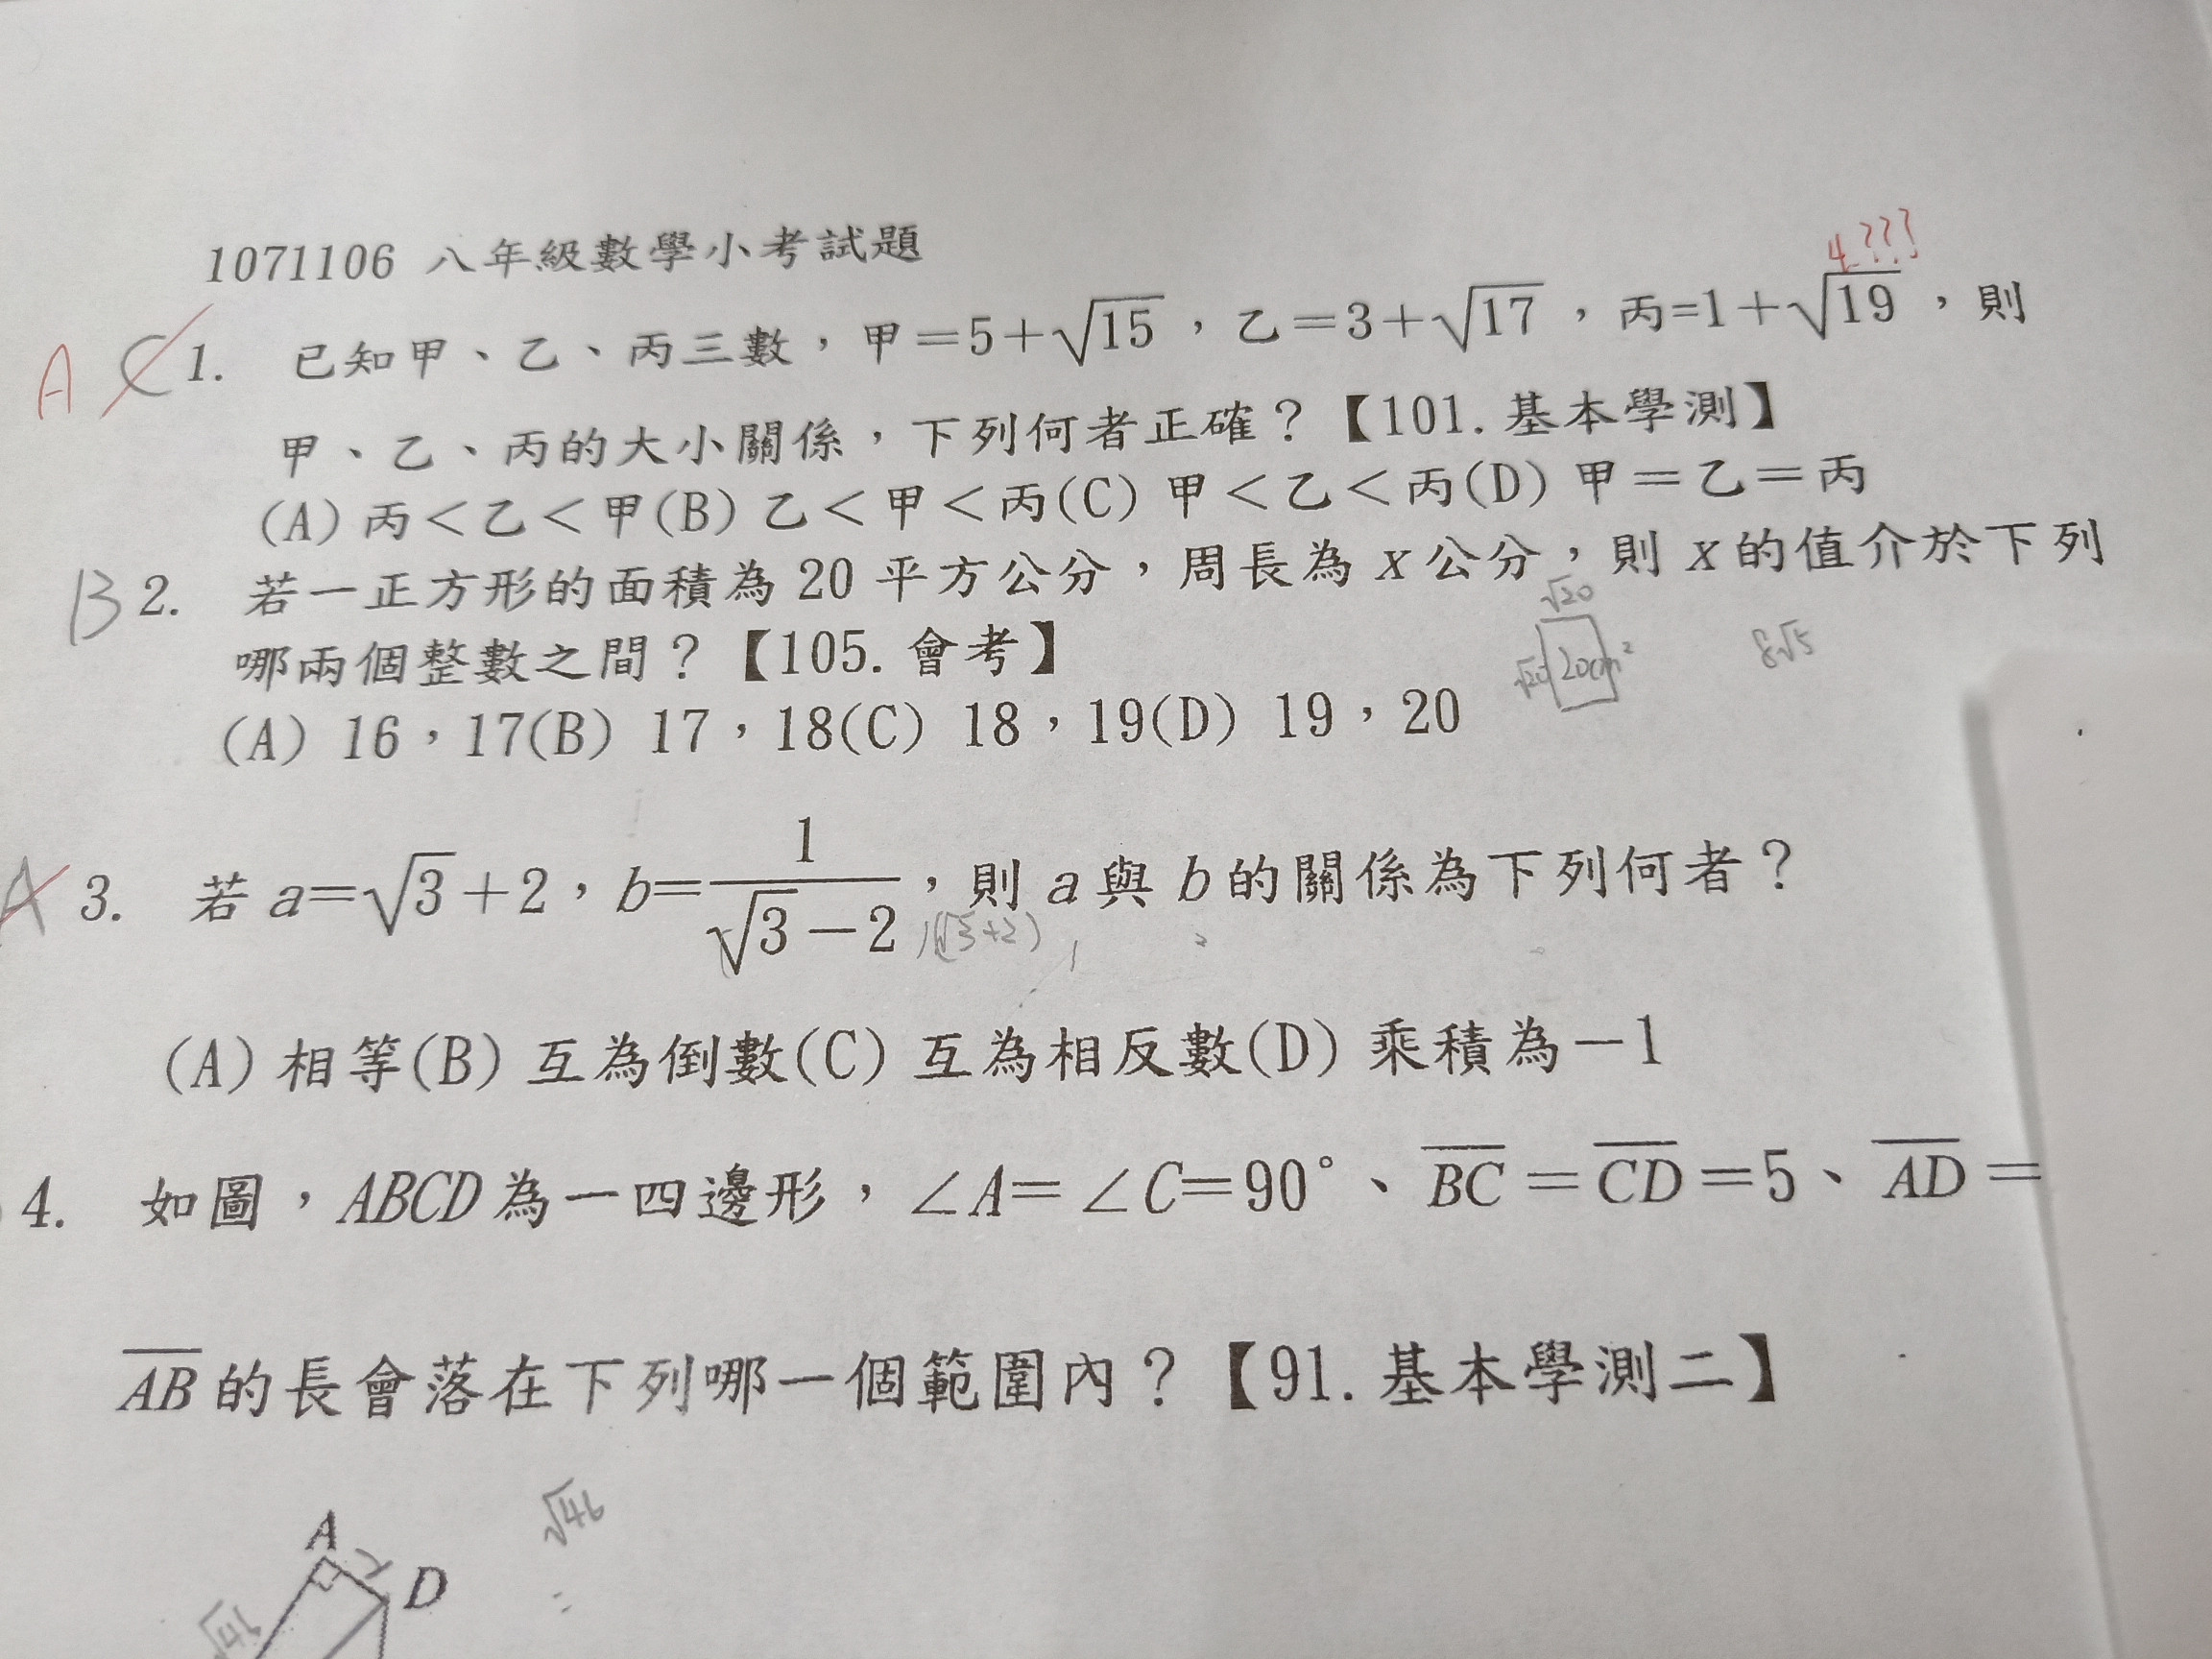 1071106 八年級數學小考試題
4???
A C 1. 已知甲、乙、丙三數，甲=5+√15，乙=3+√17，丙=1+√19，則
甲、乙、丙的大小關係，下列何者正確？【101.基本學測】
(A) 丙<乙<甲(B) 乙<甲<丙(C) 甲<乙<丙(D) 甲=乙=丙
B 2. 若一正方形的面積為 20 平方公分，周長為 x 公分，則 x 的值介於下列
哪兩個整數之間？【105.會考】
√20
√20 20cm² 8√5
(A) 16，17(B) 17，18(C) 18，19(D) 19，20
A 3. 若 a=√3+2，b=1/(√3-2)，則 a 與 b 的關係為下列何者？
1(√3+2)
(A) 相等(B) 互為倒數(C) 互為相反數(D) 乘積為-1
4. 如圖，ABCD 為一四邊形，∠A=∠C=90°、BC=CD=5、AD=
AB 的長會落在下列哪一個範圍內？【91.基本學測二】
√46
A
2
D
√46